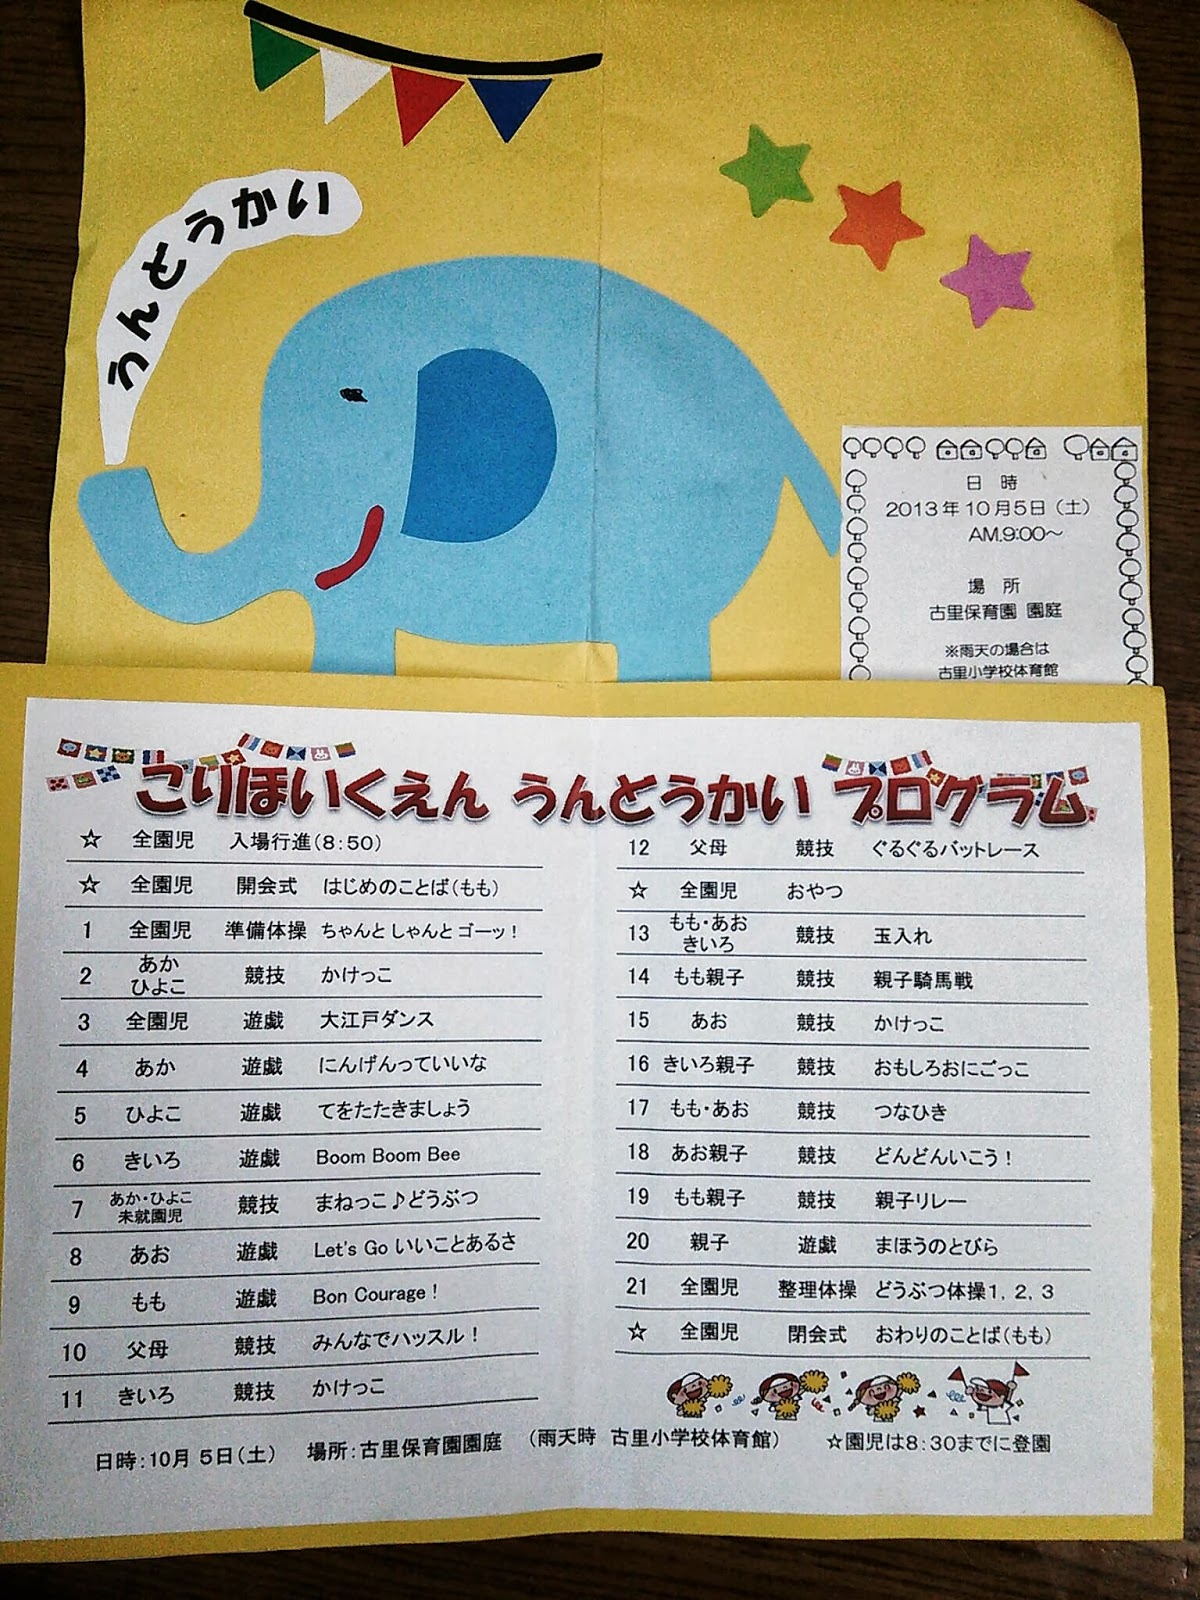 うんどうかい
日 時
2013年10月5日(土)
AM.9:00~
場 所
古里保育園 園庭
※雨天の場合は
古里小学校体育館
こりほいくえん うんどうかい プログラム
☆ 全園児 入場行進(8:50)
☆ 全園児 開会式 はじめのことば(もも)
1 全園児 準備体操 ちゃんとしゃんとゴーッ!
2 あか ひよこ 競技 かけっこ
3 全園児 遊戯 大江戸ダンス
4 あか 遊戯 にんげんっていいな
5 ひよこ 遊戯 てをたたきましょう
6 きいろ 遊戯 Boom Boom Bee
7 あか・ひよこ 未就園児 競技 まねっこ♪どうぶつ
8 あお 遊戯 Let's Go いいことあるさ
9 もも 遊戯 Bon Courage!
10 父母 競技 みんなでハッスル!
11 きいろ 競技 かけっこ
12 父母 競技 ぐるぐるバットレース
☆ 全園児 おやつ
13 もも・あお きいろ 競技 玉入れ
14 もも親子 競技 親子騎馬戦
15 あお 競技 かけっこ
16 きいろ親子 競技 おもしろおにごっこ
17 もも・あお 競技 つなひき
18 あお親子 競技 どんどんいこう!
19 もも親子 競技 親子リレー
20 親子 遊戯 まほうのとびら
21 全園児 整理体操 どうぶつ体操1,2,3
☆ 全園児 閉会式 おわりのことば(もも)
日時:10月 5日(土) 場所:古里保育園園庭 (雨天時 古里小学校体育館) ☆園児は8:30までに登園